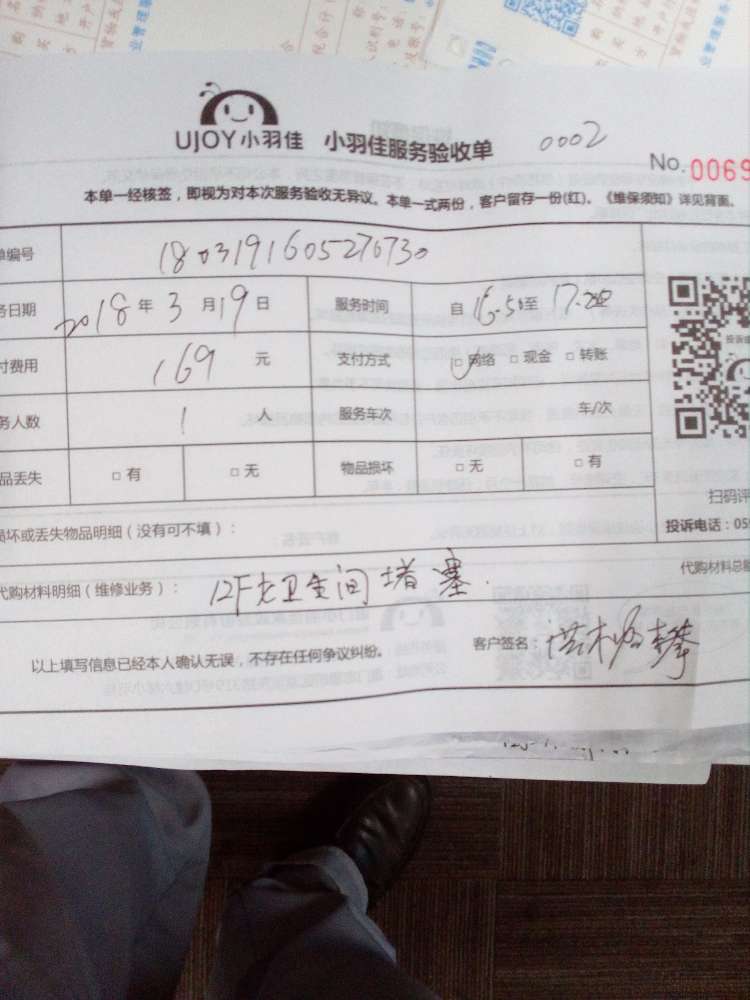 UJOY小羽佳 小羽佳服务验收单 0002
No.0069
本单一经核签，即视为对本次服务验收无异议。本单一式两份，客户留存一份(红)。《维保须知》详见背面。
单编号 1803191605270730
务日期 2018年3月19日 服务时间 自16:50至17:20
付费用 169元 支付方式 □网络 □现金 □转账
务人数 1人 服务车次 车/次
品丢失 □有 □无 物品损坏 □无 □有
扫码评
损坏或丢失物品明细（没有可不填）：
投诉电话：05
代购材料明细（维修业务）： 12F 卫生间堵塞.
代购材料总额
以上填写信息已经本人确认无误，不存在任何争议纠纷。 客户签名：